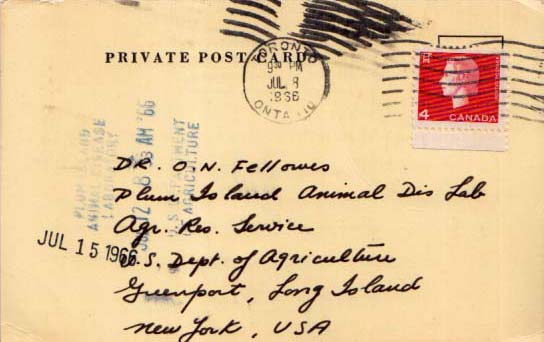 PRIVATE POST CARD
TORONTO
9 30 PM
JUL 8
1966
ONTARIO
4
CANADA
PLUM ISLAND
ANIMAL DISEASE
LABORATORY
JUL 12 8 AM '66
U.S. DEPARTMENT
OF AGRICULTURE
JUL 15 1966
DR. O. N. Fellowes
Plum Island Animal Dis Lab
Agr. Res. Service
U.S. Dept. of Agriculture
Greenport, Long Island
New York, USA